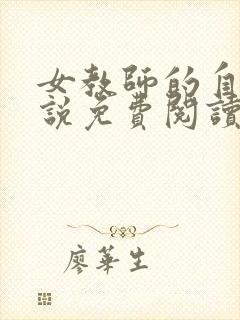 女教師的自
說免費閱讀
廖華生